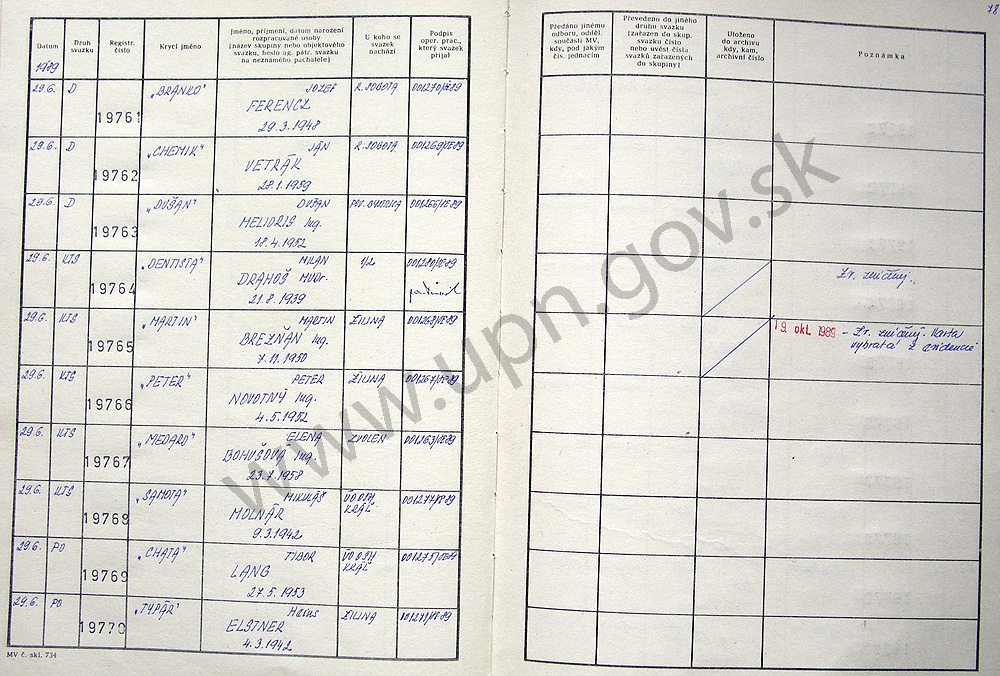 78
Datum
Druh svazku
Registr. číslo
Krycí jméno
Jméno, příjmení, datum narození
rozpracované osoby
[název skupiny nebo objektového
svazku, heslo ag. pátr. svazku
na neznámého pachatele]
U koho se
svazek
nachází
Podpis
oper. prac.,
který svazek
přijal
Předáno jinému
odboru, odděl.
součásti MV,
kdy, pod jakým
čís. jednacím
Převedeno do jiného
druhu svazku
[zařazen do skup.
svazku číslo
nebo uvést čísla
svazků zařazených
do skupiny]
Uloženo
do archivu
kdy, kam,
archivní číslo
Poznámka
1989
29.6. D 19761 „BRANKO" JOZEF R. SOBOTA
FERENCZ
29.3.1948
29.6. D 19762 „CHEMIK" JÁN R. SOBOTA
VETRÁK
28.1.1959
29.6. D 19763 „DUŠAN" DUŠAN POV. BYSTRICA
MELIORIS Ing.
18.4.1952
29.6. KTS 19764 „DENTISTA" MILAN
DRAHOŠ MUDr.
21.8.1939
Zv. zničený.
29.6. KTS 19765 „MARTIN" MARTIN ŽILINA
BREZŇAN Ing.
7.11.1950
19. okt. 1989 - Zv. zničený. Karta
vybratá z evidencie
29.6. KTS 19766 „PETER" PETER ŽILINA
NOVOTNÝ Ing.
4.5.1952
29.6. KTS 19767 „MEDARD" ELENA ZVOLEN
BOHUŠOVÁ Ing.
23.7.1958
29.6. KTS 19768 „SAMOTA" MIKULÁŠ
MOLNÁR
9.3.1942
29.6. PO 19769 „CHATA" TIBOR
LANG
27.5.1953
29.6. PO 19770 „TYPÁR" Hans ŽILINA
ELSTNER
4.3.1942
MV č. skl. 734
www.upn.gov.sk